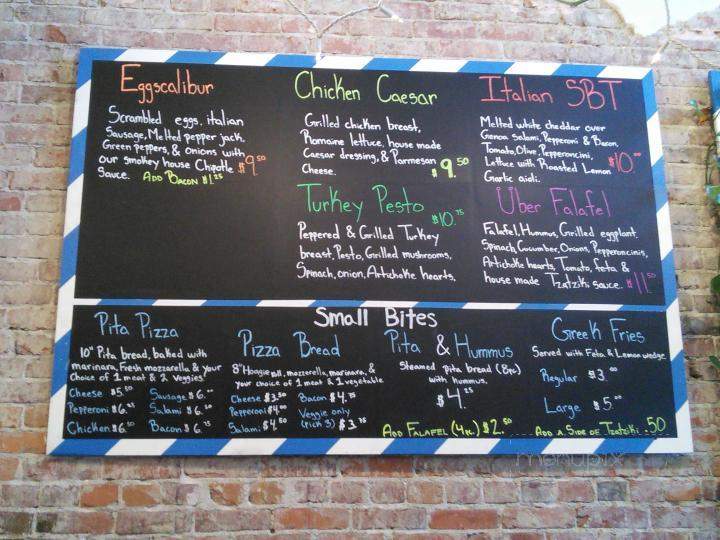 Eggscalibur
Scrambled eggs, italian
Sausage, Melted pepper jack,
Green peppers, & onions with
our smokey house Chipotle $9.50
Sauce. ADD BACON $1.25
Chicken Caesar
Grilled chicken breast,
Romaine lettuce, house made
Caesar dressing, & Parmesan
Cheese. $9.50
Turkey Pesto $10.75
Peppered & Grilled Turkey
breast, Pesto, Grilled mushrooms,
Spinach, onion, Artichoke hearts.
Italian SBT
Melted white cheddar over
Genoa salami, Pepperoni & Bacon.
Tomato, Olive, Pepperoncini,
Lettuce with Roasted Lemon $10.00
Garlic aioli.
Uber Falafel
Falafel, Hummus, Grilled eggplant,
Spinach, Cucumber, Onions, Pepperoncinis,
Artichoke hearts, Tomato, feta &
house made Tzatziki sauce. $11.50
Small Bites
Pita Pizza
10" Pita bread, baked with
marinara, Fresh mozzarella, & your
Choice of 1 meat & 2 Veggies!
Cheese $5.50 Sausage $6.00
Pepperoni $6.25 Salami $6.50
Chicken $6.50 Bacon $6.75
Pizza Bread
8" Hoagie roll, mozzarella, marinara, &
your choice of 1 meat & 1 vegetable
Cheese $3.50 Bacon $4.75
Pepperoni $4.00 Veggie only
Salami $4.50 (Pick 3) $3.75
Pita & Hummus
Steamed pita bread (8pc)
with hummus.
$4.25
ADD FALAFEL (4pc.) $2.50
Greek Fries
Served with Feta & Lemon wedge
Regular $3.00
Large $5.00
ADD A SIDE OF Tzatziki .50
menupix